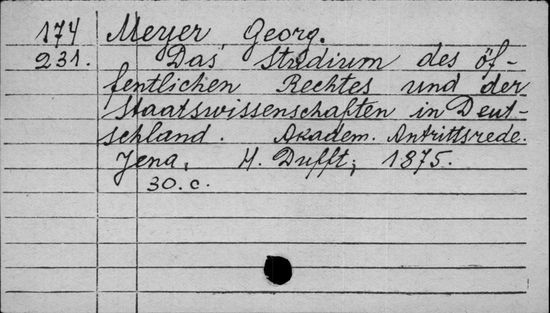 174 Meyer, Georg.
231. Das Studium des öf-
fentlichen Rechtes und der
Staatswissenschaften in Deut-
schland. Akadem. Antrittsrede.
Jena, H. Dufft, 1875.
30. c.